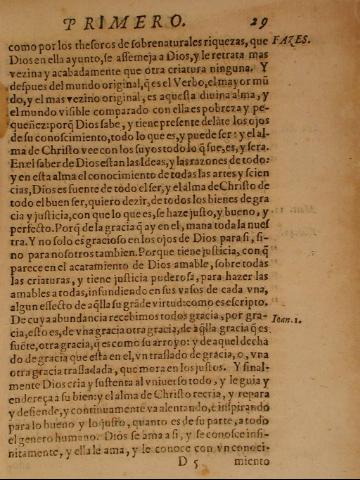 PRIMERO. 29
como por los thesoros de sobrenaturales riquezas, que FAZES.
Dios en ella ayunto, se assemeja a Dios, y le retrata mas
vezina y acabadamente que otra criatura ninguna. Y
despues del mundo original, q̃ es el Verbo, el mayor mũ
do, y el mas vezino original, es aquesta diuina alma, y
el mundo visible comparado con ella es pobreza y pe-
queñez: porq̃ Dios sabe, y tiene presente delãte los ojos
de su conoscimiento, todo lo que es, y puede ser: y el al-
ma de Christo vee con los suyos todo lo q̃ fue, es, y sera.
En el saber de Dios estan las Ideas, y las razones de todo:
y en esta alma el conocimiento de todas las artes y scien
cias, Dios es fuente de todo el ser, y el alma de Christo de
todo el buen ser, quiero dezir, de todos los bienes de gra
cia y justicia, con que lo que es, se haze justo, y bueno, y
perfecto. Porq̃ de la gracia q̃ ay en el, mana toda la nues
tra. Y no solo es gracioso en los ojos de Dios para si, si-
no para nosotros tambien. Porque tiene justicia, con q̃
parece en el acatamiento de Dios amable, sobre todas
las criaturas, y tiene justicia poderosa, para hazer las
amables a todas, infundiendo en sus vasos de cada vna,
algun effecto de aq̃lla su grãde virtud: como es escripto.
De cuya abundancia recebimos todos gracia, por gra- Ioan. 1.
cia, esto es, de vna gracia otra gracia, de aq̃lla gracia q̃ es
fuẽte, otra gracia, q̃ es como su arroyo: y de aquel decha
do de gracia que esta en el, vn traslado de gracia, o, vna
otra gracia trasladada, que mora en los justos. Y final-
mente Dios cria y sustenta al vniuerso todo, y le guia y
endereça a su bien: y el alma de Christo recria, y repara
y defiende, y continuamente va alentando, è inspirando
para lo bueno y lo justo, quanto es de su parte, a todo
el genero humano. Dios se ama a si, y se conosce infi-
nitamente, y ella le ama, y le conoce con vn conoci-
D 5 miento